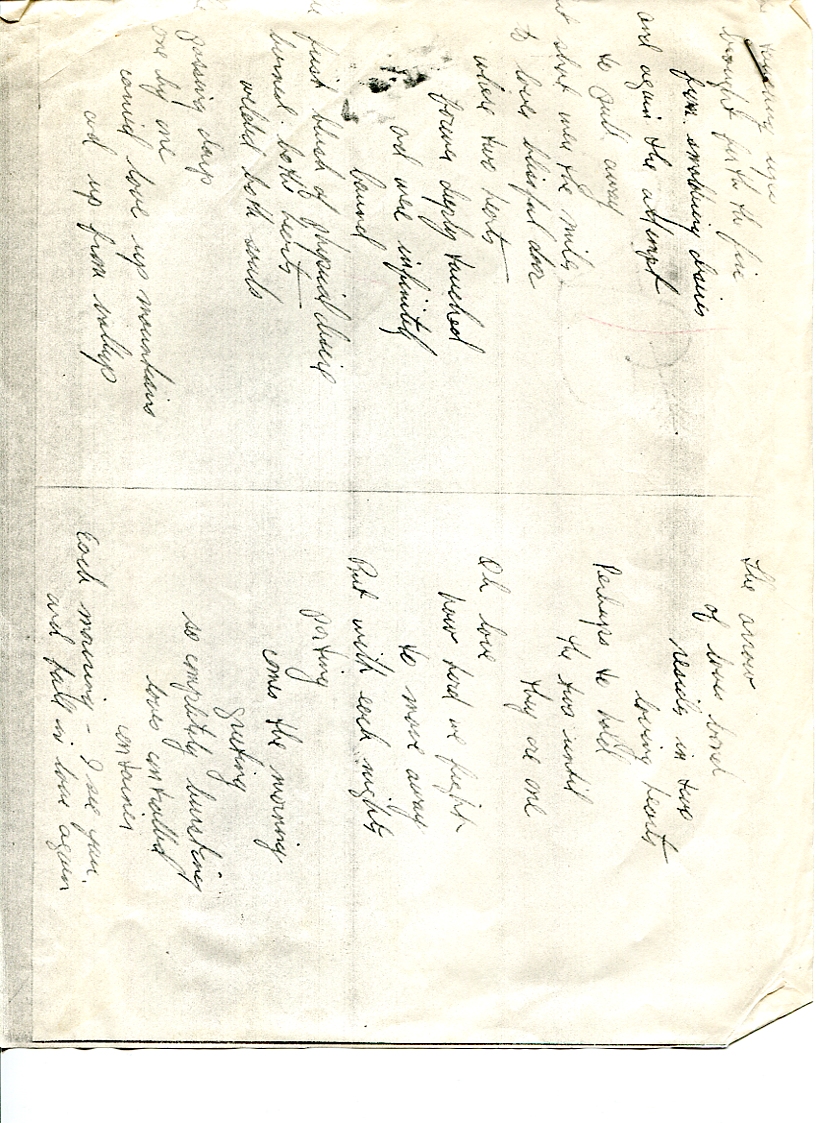 upon
brought forth the fire
from smoldering desires
and again the attempt
to pull away
shot over the miles
to loves blissful door
where two hearts
deeply touched
and were infinitely
bound
first blush of physical desire
burned both hearts
welded both souls
passing days
one by one
could love up mountains
and up from valleys
The arrow
of loves bond
results in two
loving hearts
Perhaps to hold
the two until
they are one
Oh love
how hard we fight
to move away
But with each nights
parting
comes the morning
greeting
so completely bursting
loves controlled
container
Each morning - I see you
and fall in love again